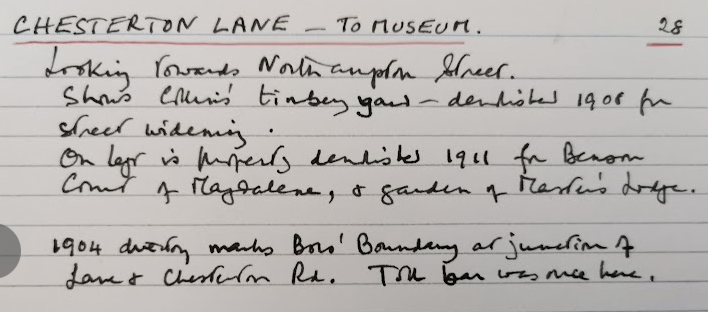 CHESTERTON LANE – TO MUSEUM. 28
Looking towards Northampton Street.
Shows Collins' timber yard – demolished 1908 for
street widening.
On left is property demolished 1911 for Benson
Court of Magdalene, & garden of Master's Lodge.
1904 directory marks Boro' Boundary at junction of
Lane & Chesterton Rd. Toll bar was once here.